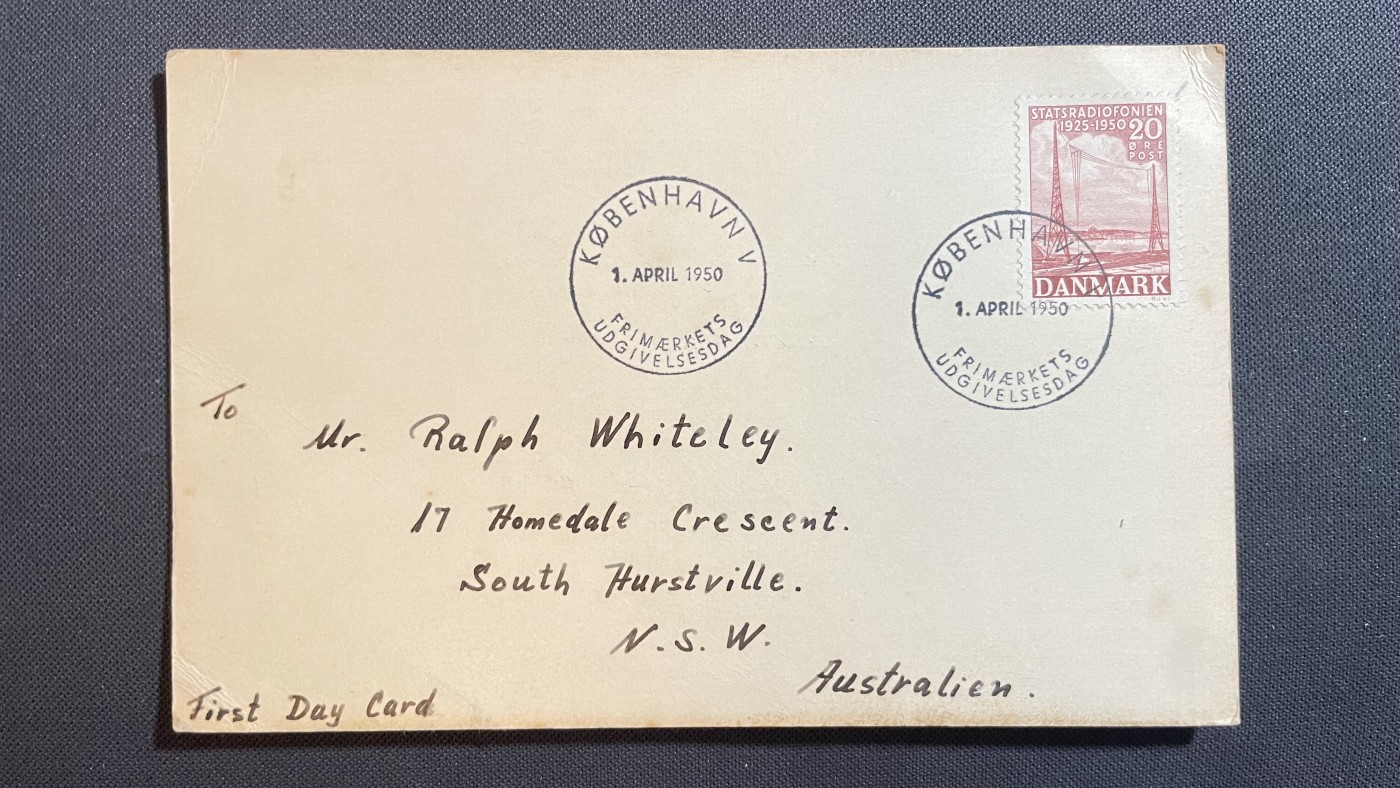 STATSRADIOFONIEN
1925-1950 20
ØRE
POST
DANMARK
KØBENHAVN V
1. APRIL 1950
FRIMÆRKETS
UDGIVELSESDAG
KØBENHAVN V
1. APRIL 1950
FRIMÆRKETS
UDGIVELSESDAG
To
Mr. Ralph Whiteley.
17 Homedale Crescent.
South Hurstville.
N.S.W.
Australien.
First Day Card